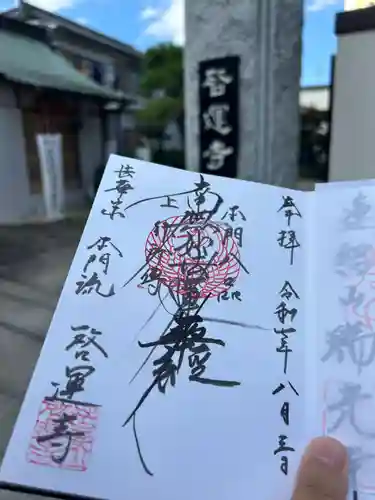 啓運寺
奉拝 令和 年 八月三日
本門八品
南無妙法蓮華経
上行所傳
法華宗
本門流
啓運寺